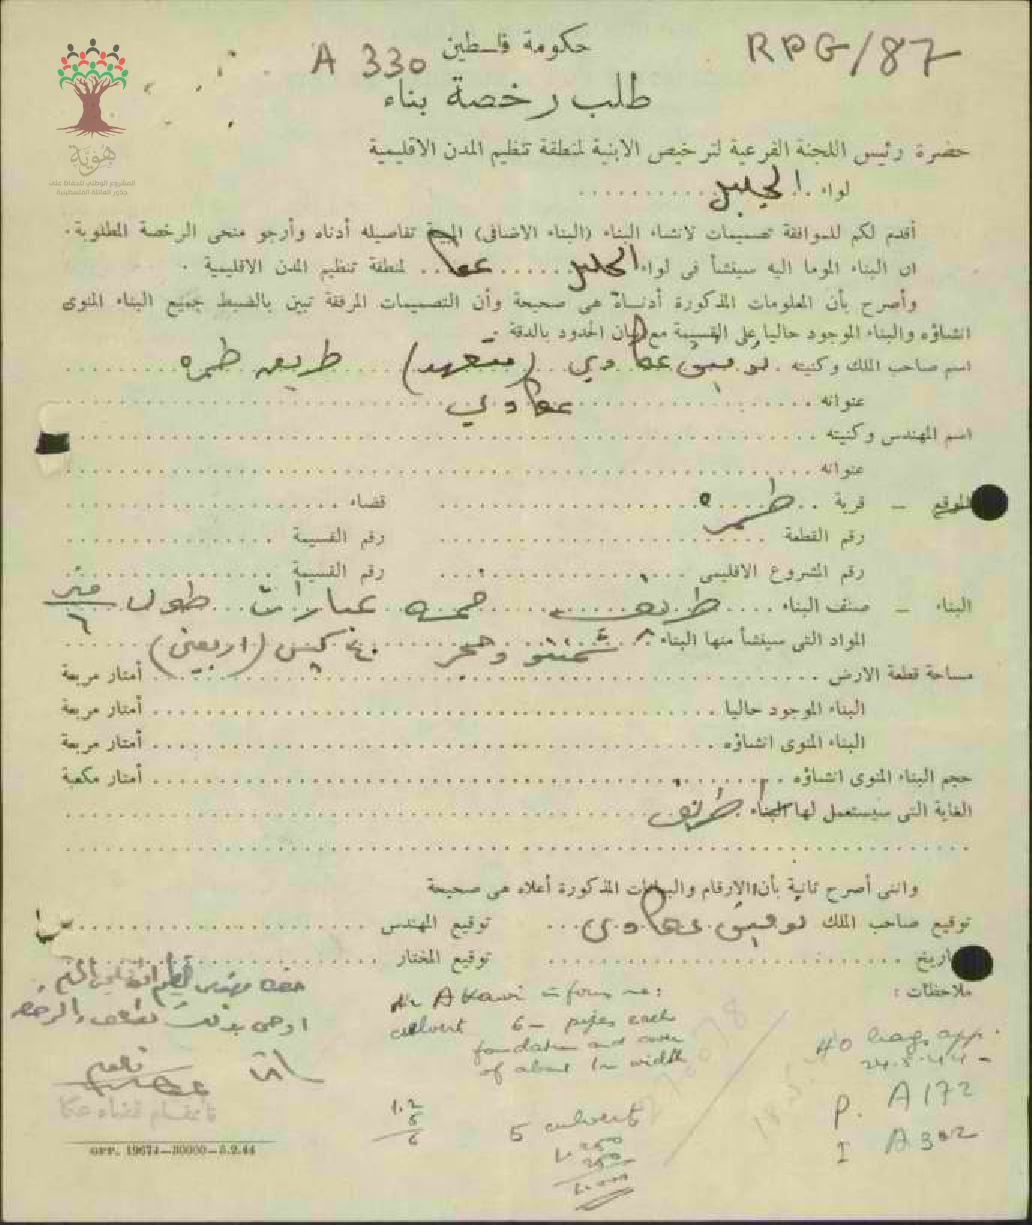 RPG/87
A 330
حكومة فلسطين
طلب رخصة بناء
هوية
المشروع الوطني للحفاظ على
جذور العائلة الفلسطينية
حضرة رئيس اللجنة الفرعية لترخيص الابنية لمنطقة تنظيم المدن الاقليمية
لواء الجليل
أقدم لكم للموافقة تصميمات لانشاء البناء (البناء الاضافى) المبينة تفاصيله أدناه وأرجو منحى الرخصة المطلوبة.
ان البناء الموما اليه سينشأ فى لواء الجليل عكا لمنطقة تنظيم المدن الاقليمية.
وأصرح بأن المعلومات المذكورة أدناه هى صحيحة وأن التصميمات المرفقة تبين بالضبط جميع البناء المنوى
انشاؤه والبناء الموجود حاليا على القسيمة مع بيان الحدود بالدقة.
اسم صاحب الملك وكنيته توفيق عكاوي (متعهد) طريق طمره
عنوانه عكاوي
اسم المهندس وكنيته
عنوانه
الموقع – قرية طمره قضاء
رقم القطعة رقم القسيمة
رقم المشروع الاقليمى رقم القسيمة
البناء – صنف البناء طريق خمسة عبارات طول متر ٦
المواد التى سينشأ منها البناء شمنتو وحجر ٤٠ كيس (اربعين)
مساحة قطعة الارض أمتار مربعة
البناء الموجود حاليا أمتار مربعة
البناء المنوى انشاؤه أمتار مربعة
حجم البناء المنوى انشاؤه أمتار مكعبة
الغاية التى سيستعمل لها البناء طريق
وانى أصرح ثانية بأن الارقام والبيانات المذكورة أعلاه هى صحيحة
توقيع صاحب الملك توفيق عكاوي توقيع المهندس
تاريخ توقيع المختار
ملاحظات:
Mr Akawi informs me:
culvert 6 – pipes each
foundation and cover
of about 1m width
40 bags app.
24.5.44
P. A172
I A302
1.2
5
6
5 culverts
قائمقام قضاء عكا
GPP. 19674—30000—5.2.44